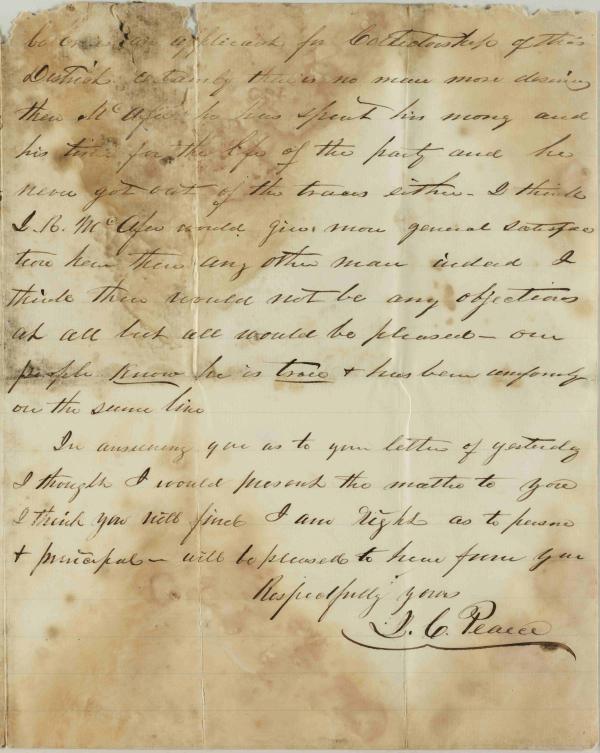 an applicant for Collectorship of this
District certainly there is no man more deserving
then McAfee he has spent his mony and
his time for the life of the party and he
never got out of the traces either - I think
J. R. McAfee would give more general satisfac
tion here then any other man indeed I
think there would not be any objections
at all but all would be pleased - our
people know he is true + has been uniformly
on the same line
In answering you as to your letter of yesterday
I thought I would present the matter to you
I think you will find I am right as to person
+ principal - will be pleased to hear from you
Respectfully yours
C. Pearce